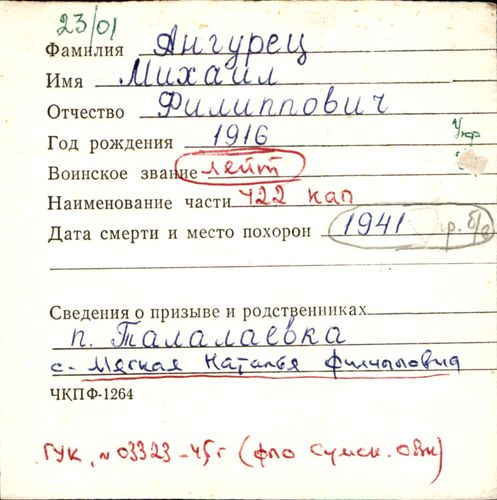 23/01
Фамилия Ангурец
Имя Михаил
Отчество Филиппович
Год рождения 1916
Укр
Воинское звание лейт
Наименование части 422 кап
Дата смерти и место похорон 1941 пр. б/в
Сведения о призыве и родственниках
п. Талалаевка
с. Мягкая Наталья
ЧКПФ-1264
ГУК, № 03323-45г (фло Сумск. ОВК)